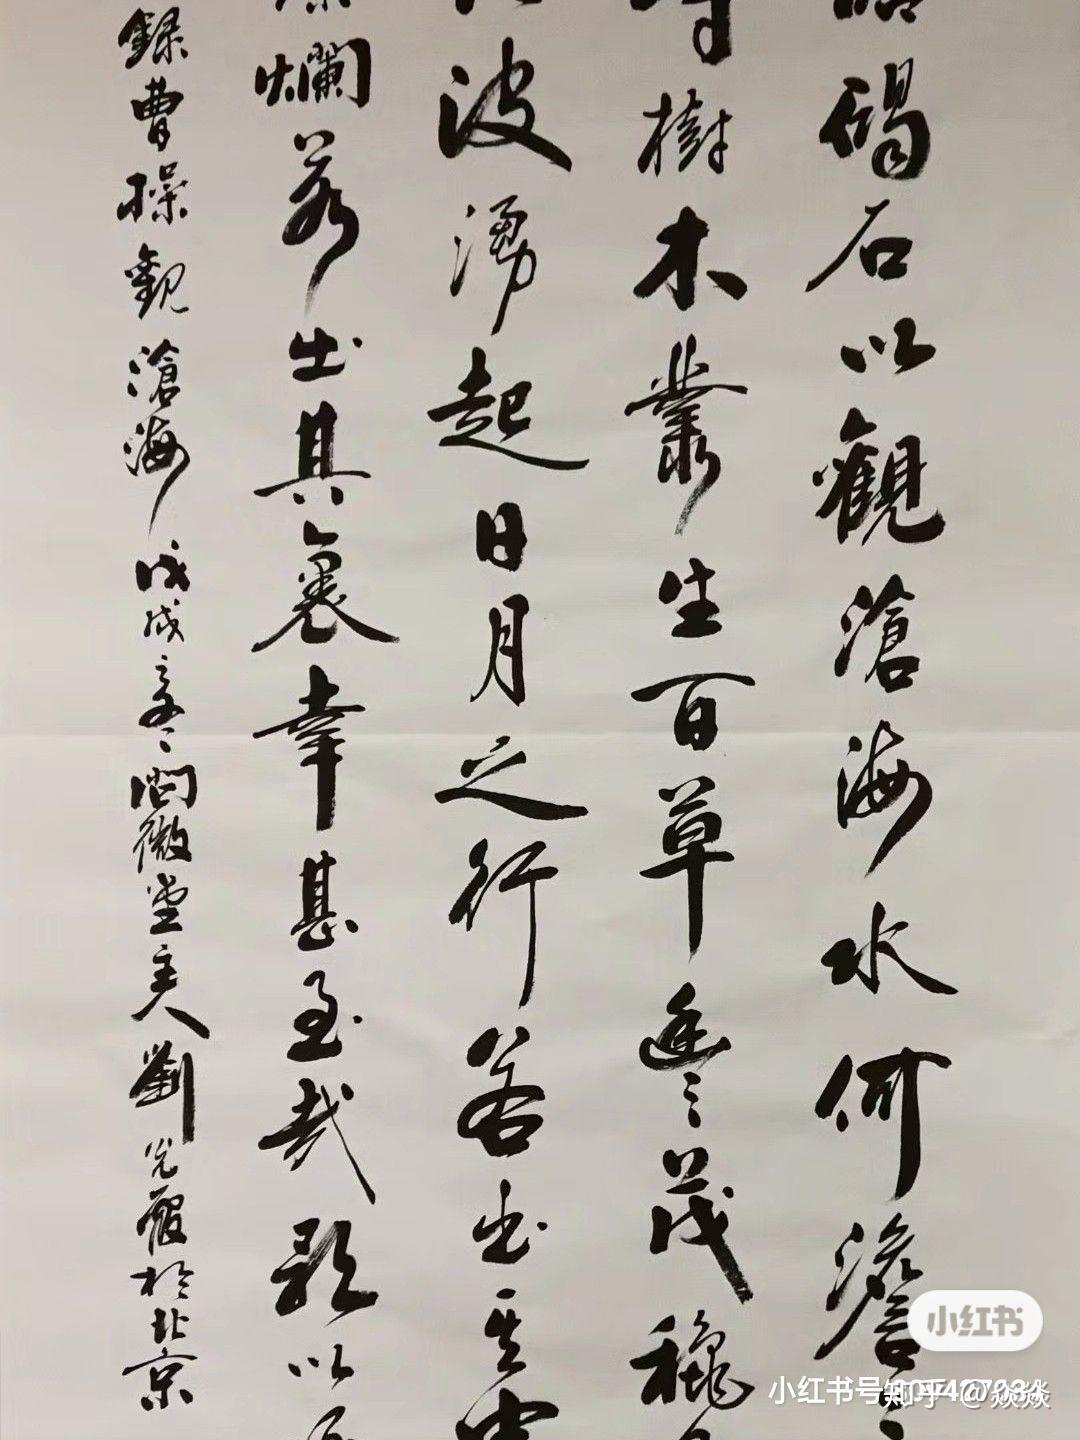 碣石以觀滄海水何澹
樹木叢生百草茂穐
波湧起日月之行若出其中
爛若出其裏幸甚至哉歌以
錄曹操觀滄海戊戌冬問微堂主人劉光於北京
小红书
小红书号
知乎 @焱焱